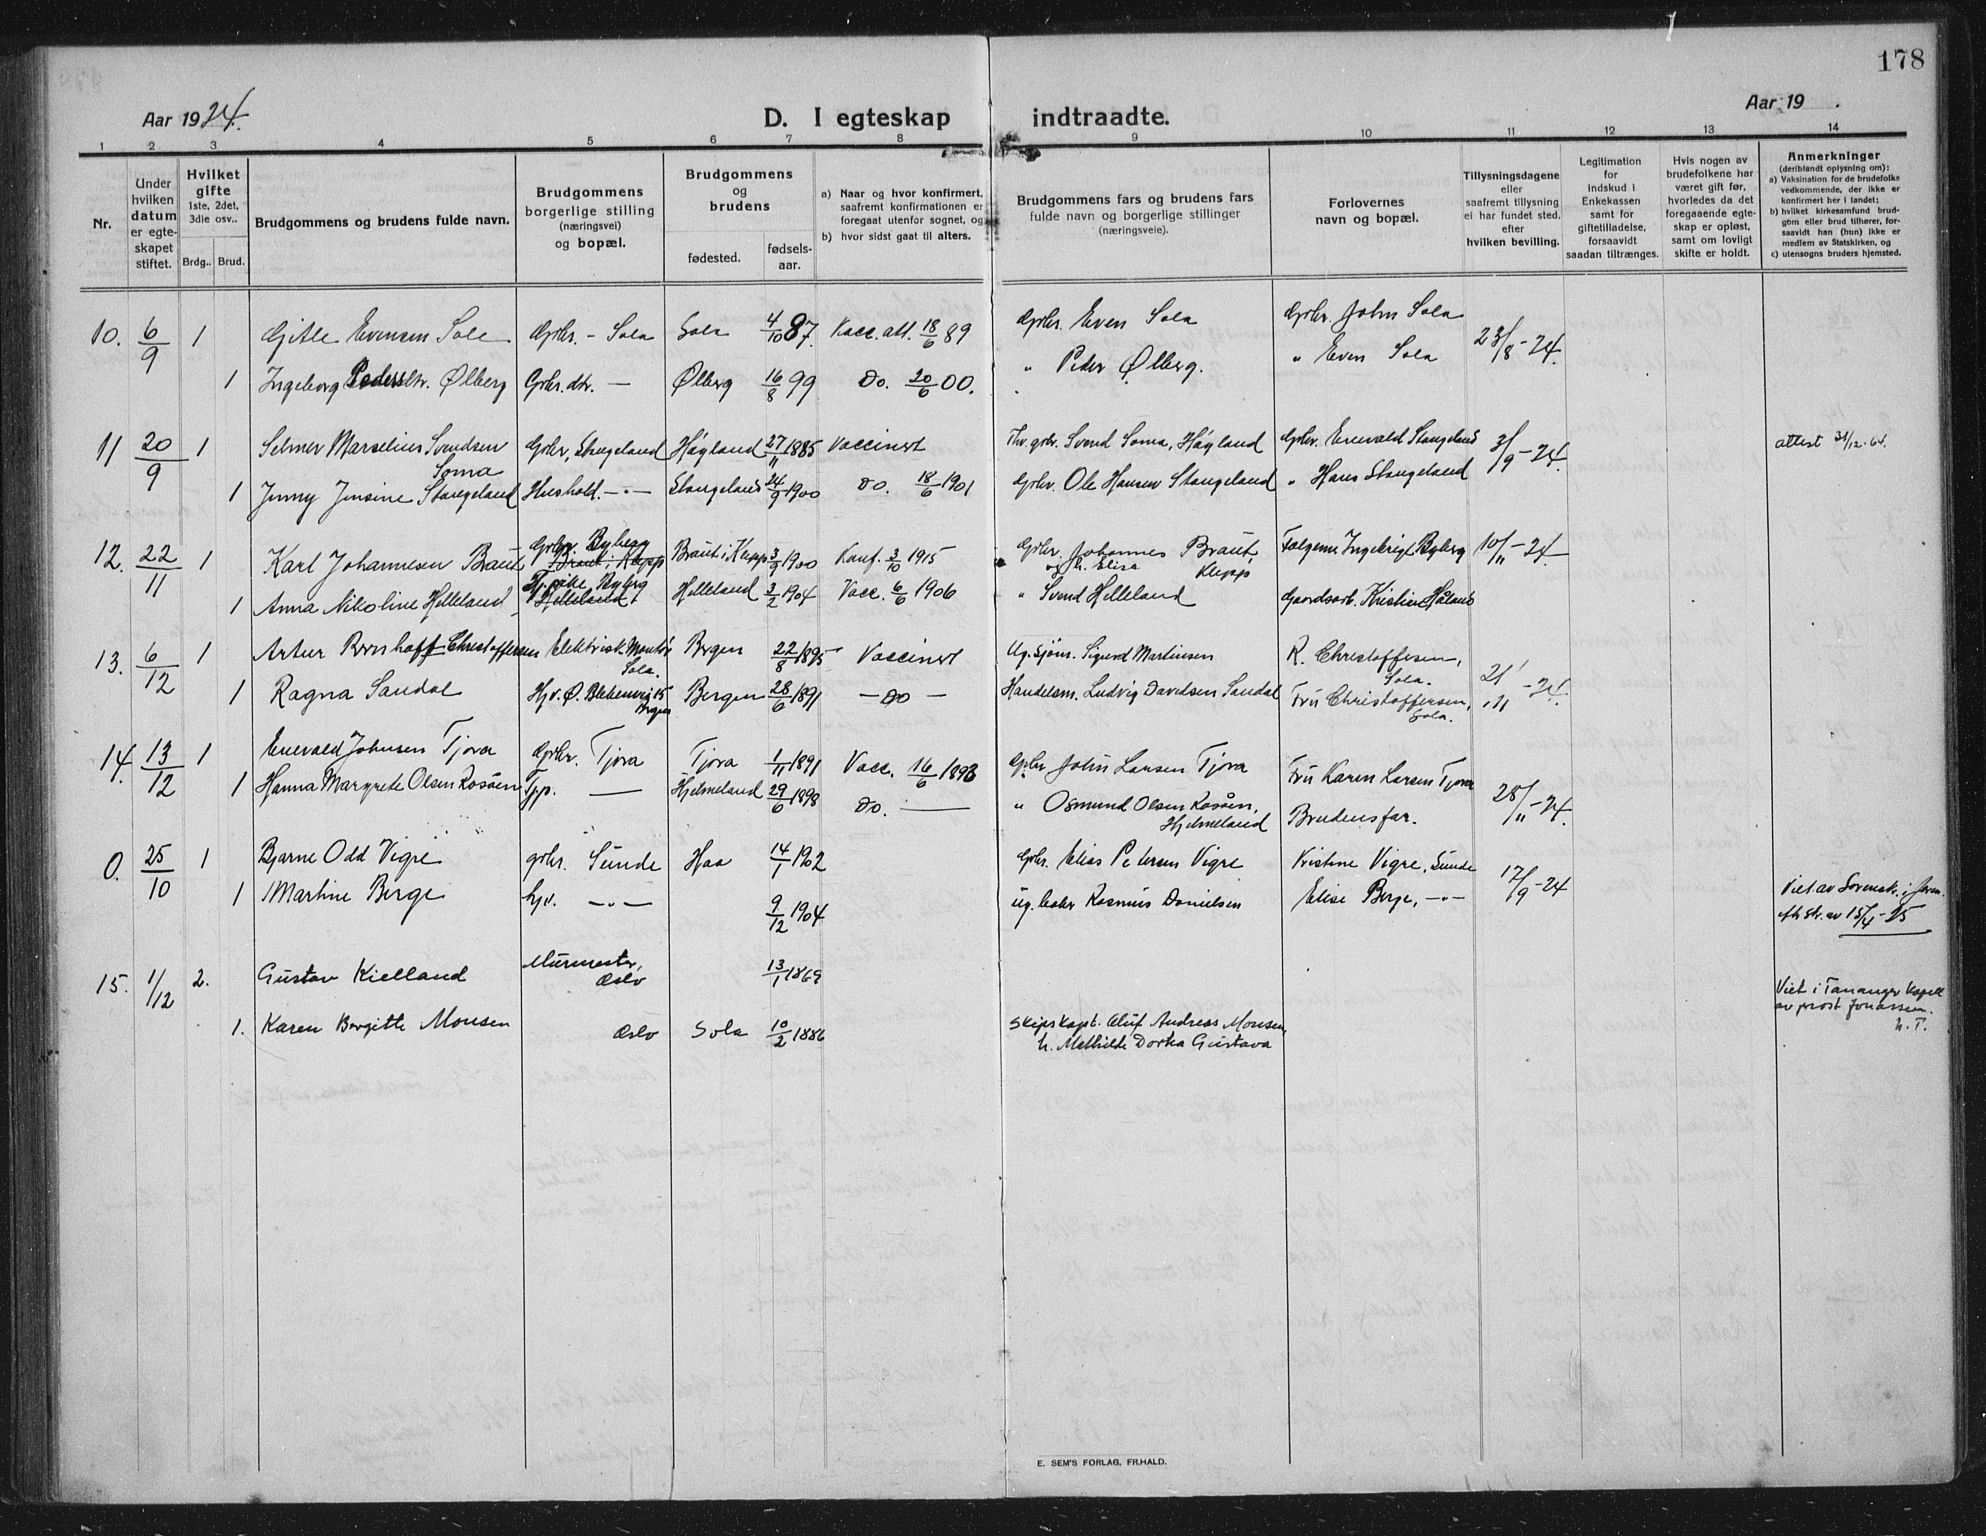 178
Aar 1924.
D. I egteskap indtraadte.
Aar 19 .
1 2 3 4 5 6 7 8 9 10 11 12 13 14
Nr.
Under hvilken datum er egteskapet stiftet.
Hvilket gifte 1ste, 2det, 3die osv..
Brdg.. Brud.
Brudgommens og brudens fulde navn.
Brudgommens borgerlige stilling (næringsvei) og bopæl.
Brudgommens og brudens
fødested. fødsels-aar.
a) Naar og hvor konfirmert, saafremt konfirmationen er foregaat utenfor sognet, og
b) hvor sidst gaat til alters.
Brudgommens fars og brudens fars fulde navn og borgerlige stillinger (næringsveie).
Forlovernes navn og bopæl.
Tillysningsdagene eller saafremt tillysning ei har fundet sted. efter hvilken bevilling.
Legitimation for indskud i Enkekassen samt for giftetilladelse, forsaavidt saadan tiltrænges.
Hvis nogen av brudefolkene har været gift før, hvorledes da det foregaaende egteskap er opløst, samt om lovligt skifte er holdt.
Anmerkninger (deriblandt oplysning om):
a) Vaksination for de brudefolks vedkommende, der ikke er konfirmert her i landet;
b) hvilket kirkesamfund brudgom eller brud tilhører, forsaavidt han (hun) ikke er medlem av Statskirken, og
c) utensogns bruders hjemsted.
10. 6/9 1 Gitle Evensen Sole Gbr. - Sola Sola 4/10 87. Vacc. att. 18/6 89 Gbr. Even Sola Gbr. John Sola 23/8-24.
1 Ingeborg Pedersdtr. Ølberg Gbr. dtr. — Ølberg 16/8 99 Do. 20/6 00. " Peder Ølberg. " Even Sola
11 20/9 1 Selmer Marselius Svendsen Soma Gbr., Stangeland Høyland 27/11 1885 Vaccinert Svend Soma, Høyland Gbr. Enevald Stangeland 3/9-24. attest 31/12-64.
1 Jenny Jensine Stangeland Hushold. -"- Stangeland 24/9 1900 do. 18/6 1901 Gbr. Ole Hansen Stangeland " Hans Stangeland
12. 22/11 1 Karl Johannesen Braut Gbr. Byberg Braut i Klepp Braut i Klepp 3/9 1900 Konf. 3/10 1915 Gbr. Johannes Braut, og h. Elisa Klepp Ingebrigt Byberg 10/11-24.
1 Anna Nikoline Helleland Byberg Helleland Helleland 3/2 1904 Vacc. 6/6 1906 " Svend Helleland Gaardsarb. Kristian Håland
13. 6/12 1 Artur Bernhoff Christoffersen Elektrisk. Montør Sola. Bergen 22/8 1895 Vaccinert Ug. Sjøm. Sigurd Martinsen R. Christoffersen, Sola. 21/11-24.
1 Ragna Sandal Hj. v. Ø. Blekenvei 15 Bergen Bergen 28/6 1891 — Do — Handelsm. Ludvig Davidsen Sandal Fru Christoffersen, Sola.
14. 13/12 1 Enevald Johnsen Tjora Gbr. Tjora Tjora 1/11 1891 Vacc. 16/6 1893 Gbr John Larsen Tjora Fru Karen Larsen Tjora 28/11-24.
1 Hanna Margrete Olsen Rosåen — Hjelmeland 29/6 1898 Do. — " Osmund Olsen Rosåen, Hjelmeland Brudens far.
0. 25/10 1 Bjarne Odd Vigre gbr. Sunde Haa 14/1 1902 Gbr. Elias Petersen Vigre Kristine Vigre, Sunde 17/9-24
1 Martine Berge hjv. -"- 9/12 1904 Rasmus Danielsen Elise Berge, -"- Viet av Sorensk. i Jæren. av 15/4-25
15. 1/12 2. Gustav Kielland Murmester, Oslo 13/1 1869 Viet i Tananger Kapell av prost Jonassen.
1. Karen Bergitte Monsen Oslo Sola 10/2 1886 Skipskapt. Oluf Andreas Monsen, h. Mathilde Dortea Gustava
E. SEM'S FORLAG, FR.HALD.